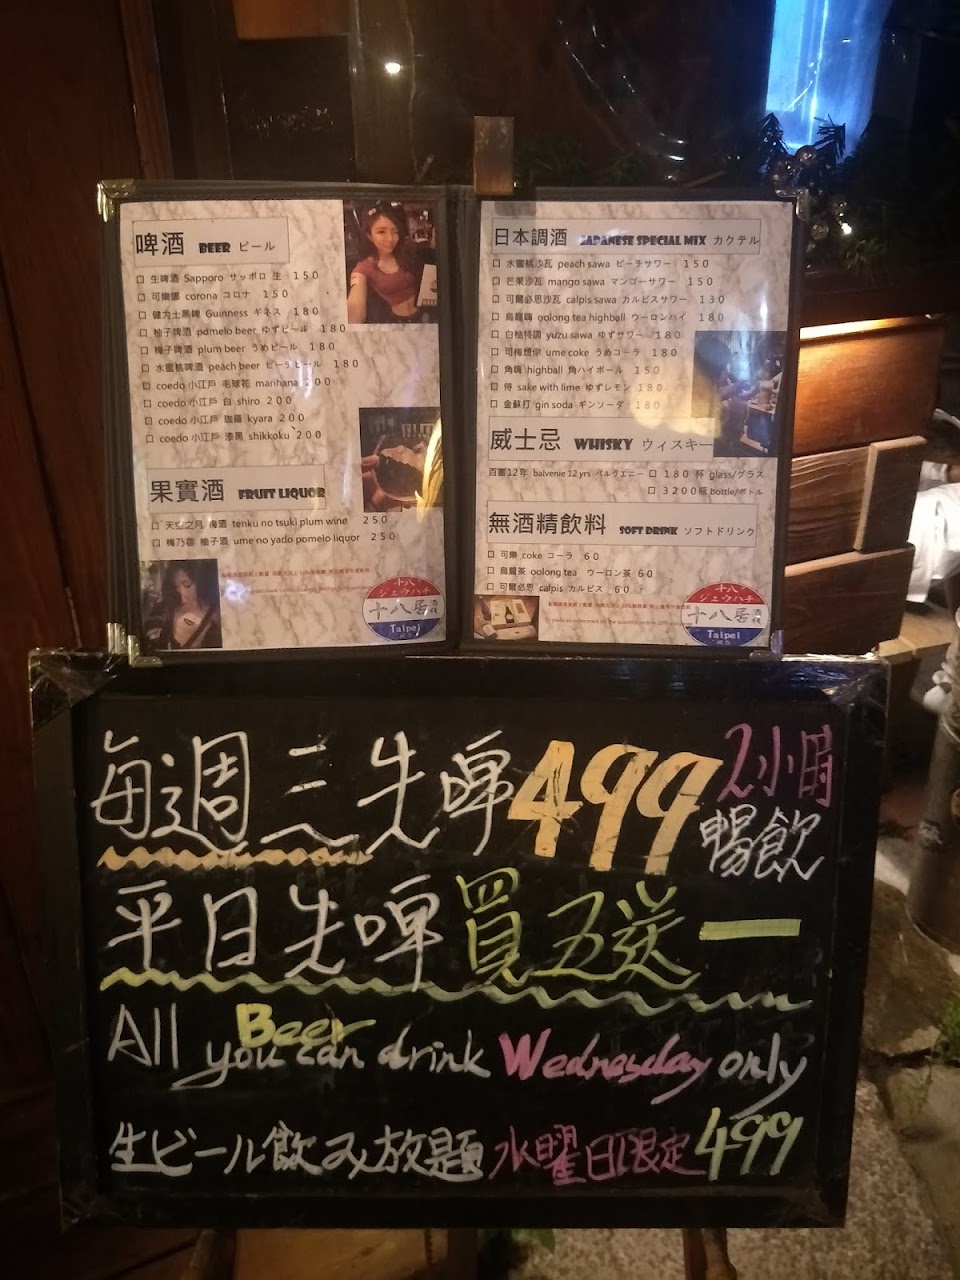 啤酒 BEER ビール
生啤酒 Sapporo サッポロ 生 150
可樂娜 corona コロナ 150
健力士黑啤 Guinness ギネス 180
柚子啤酒 pomelo beer ゆずビール 180
梅子啤酒 plum beer うめビール 180
水蜜桃啤酒 peach beer ピーチビール 180
coedo 小江戶 毬球花 marihana 200
coedo 小江戶 白 shiro 200
coedo 小江戶 珈羅 kyara 200
coedo 小江戶 漆黑 shikkoku 200
果實酒 FRUIT LIQUOR
天空之月 梅酒 tenku no tsuki plum wine 250
梅乃宿 柚子酒 ume no yado pomelo liquor 250
十八
ジュウハチ
十八居 酒棧
Taipei
日本調酒 JAPANESE SPECIAL MIX カクテル
水蜜桃沙瓦 peach sawa ピーチサワー 150
芒果沙瓦 mango sawa マンゴーサワー 150
可爾必思沙瓦 calpis sawa カルピスサワー 130
烏龍嗨 oolong tea highball ウーロンハイ 180
白柚特調 yuzu sawa ゆずサワー 180
可梅想你 ume coke うめコーラ 180
角嗨 highball 角ハイボール 150
侍 sake with lime ゆずレモン 180
金蘇打 gin soda ギンソーダ 180
威士忌 WHISKY ウィスキー
百富12年 balvenie 12 yrs バルヴェニー 180 杯 glass/グラス
3200瓶 bottle/ボトル
無酒精飲料 SOFT DRINK ソフトドリンク
可樂 coke コーラ 60
烏龍茶 oolong tea ウーロン茶 60
可爾必思 calpis カルピス 60
十八
ジュウハチ
十八居 酒棧
Taipei
每週三生啤499 2小時
暢飲
平日生啤買五送一
All Beer you can drink Wednesday only
生ビール飲み放題 水曜日限定499